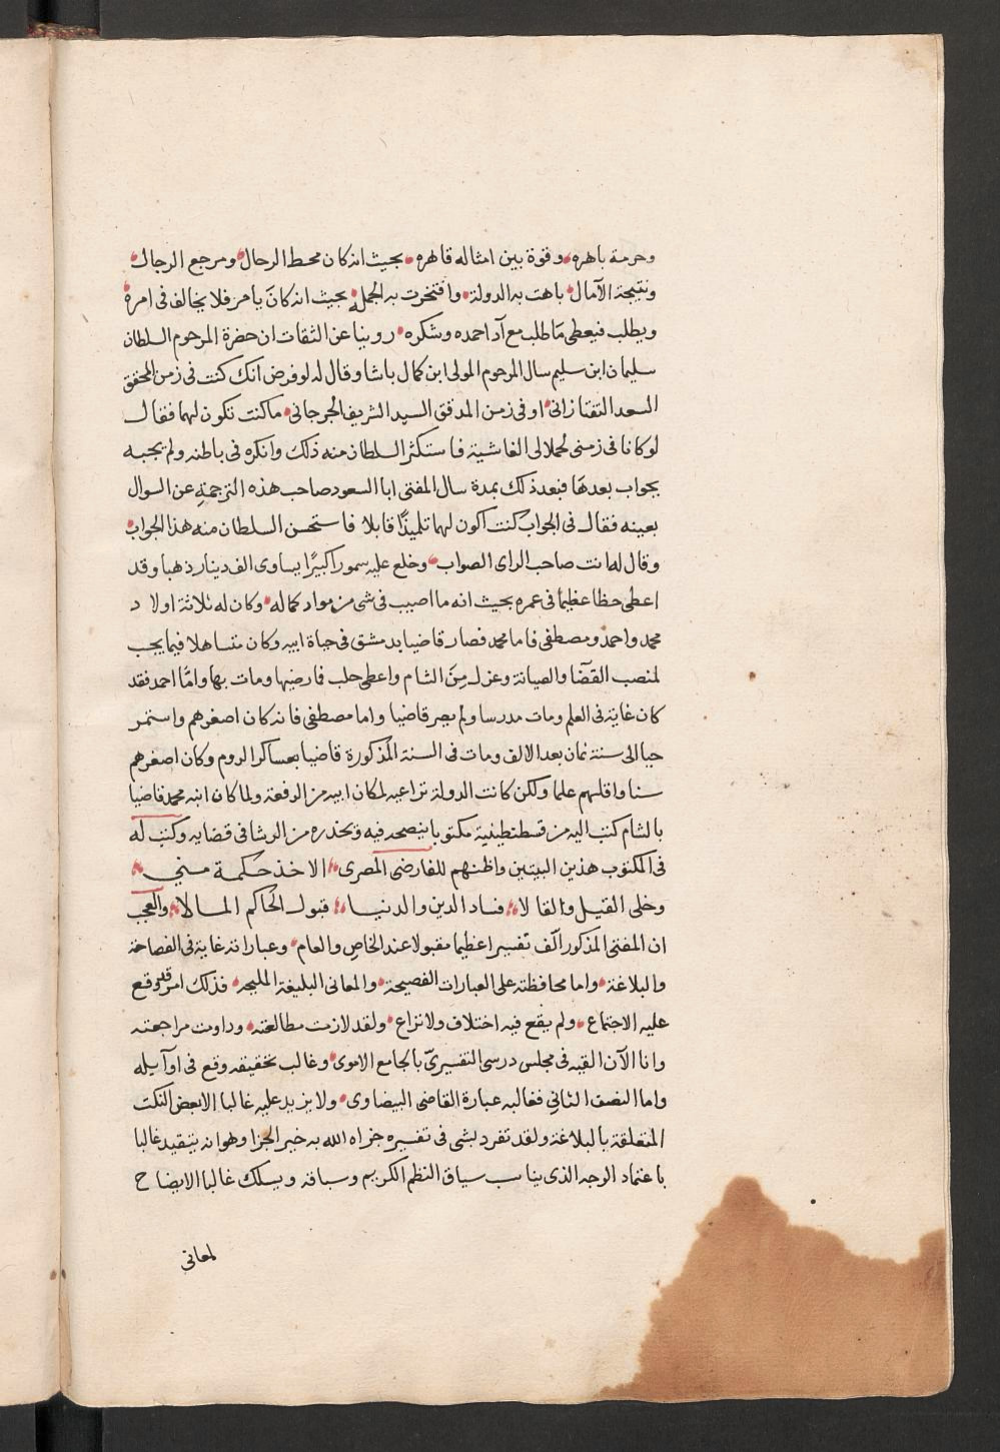 وحرمة باهره، وقوة بين امثاله قاهره، بحيث انه كان محط الرحال، ومرجع الرجال،
ونتيجة الآمال، باهت به الدولة، وافتخرت به الجمله، بحيث انه كان يامر فلا يخالف فى امره
ويطلب فيعطى ما طلب مع آد احمده وشكره، روينا عن الثقات ان حضرة المرحوم السلطان
سليمان ابن سليم سال المرحوم المولى ابن كمال باشا وقال له لو فرض انك كنت فى زمن المحقق
السعد التفتازانى، او فى زمن المدقق السيد الشريف الجرجانى، ما كنت تكون لهما فقال
لو كانا فى زمنى لحملا لى الغاشية فاستكثر السلطان منه ذلك وانكره فى باطنه ولم يجبه
بجواب بعدها فبعد ذلك بمدة سال المفتى ابا السعود صاحب هذه الترجمة عن السوال
بعينه فقال فى الجواب كنت اكون لهما تلميذًا قابلا فاستحسن السلطان منه هذا الجواب،
وقال له انت صاحب الراى الصواب، وخلع عليه سمورا كبيرًا يساوى الف دينار ذهبا وقد
اعطى حظا عظيما فى عمره بحيث انه ما اصيب فى شى من مواد كماله، وكان له ثلاثة اولاد
محمد واحمد ومصطفى فاما محمد فصار قاضيا بدمشق فى حياة ابيه وكان متساهلا فيما يجب
لمنصب القضا والصيانة وعزل من الشام واعطى حلب فارضيها ومات بها واما احمد فقد
كان غاية فى العلم ومات مدرسا ولم يصر قاضيا واما مصطفى فانه كان اصغرهم واستمر
حيا الى سنة ثمان بعد الالف ومات فى السنة المذكورة قاضيا بعساكر الروم وكان اصغرهم
سنا واقلهم علما ولكن كانت الدولة تراعيه لمكان ابيه من الرفعة ولما كان ابنه محمد قاضيا
بالشام كتب اليه من قسطنطينية مكتوبا ينصحه فيه ويحذره من الرشا فى قضايه وكتب له
فى المكتوب هذين البيتين واظنهم للفارضى المصرى، الا خذ حكمة منى
وخلى القيل والقالا، فساد الدين والدنيا، قبول الحاكم المالا، والعجب
ان المفتى المذكور الّف تفسيرا عظيما مقبولا عند الخاص والعام، وعباراته غاية فى الفصاحة
والبلاغة، واما محافظته على العبارات الفصيحة، والمعانى البليغة المليحه، فذلك امر قد وقع
عليه الاجتماع، ولم يقع فيه اختلاف ولا نزاع، ولقد لازمت مطالعته، وداومت مراجعته
وانا الآن القيه فى مجلس درسى التفسيرىّ بالجامع الاموى، وغالب تحقيقه وقع فى اوآيله
واما النصف الثانى فغالبه عبارة القاضى البيضاوى، ولا يزيد عليه غالبا الا بعض النكت
المتعلقة بالبلاغة ولقد تفرد بشى فى تفسيره جزاه الله به خير الجزا وهو انه يتقيد غالبا
باعتماد الوجه الذى يناسب سياق النظم الكريم وسباقه ويسلك غالبا الايضاح
لمعانى